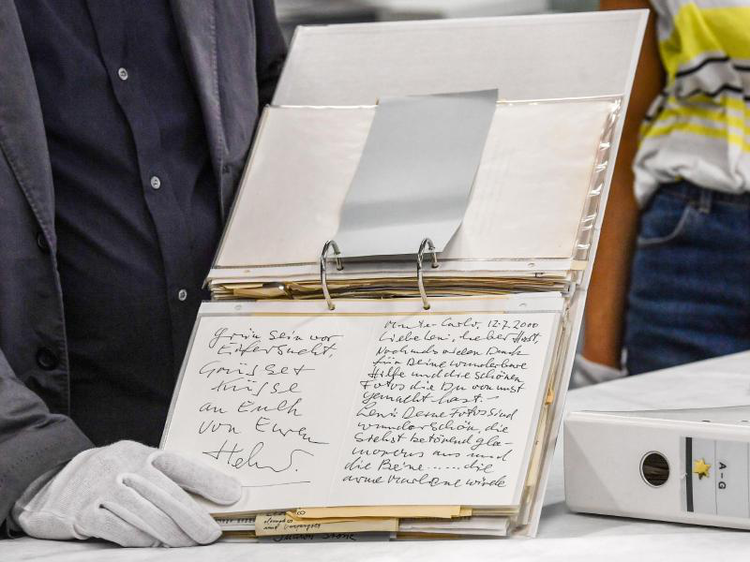 Monte-Carlo, 12-7.2000
Liebe Leni, lieber Horst,
Nochmals vielen Dank
für Deine wunderbare
Hilfe und die schönen
Fotos die Du von uns
gemacht hast. -
Leni Deine Fotos sind
wunderschön, Du
siehst betörend gla-
mourous aus und
die Beine ......die
arme Marlene würde
Grün sein vor
Eifersucht.
Grüsse +
Küsse
an Euch
von Euren
Helmut.
A-G